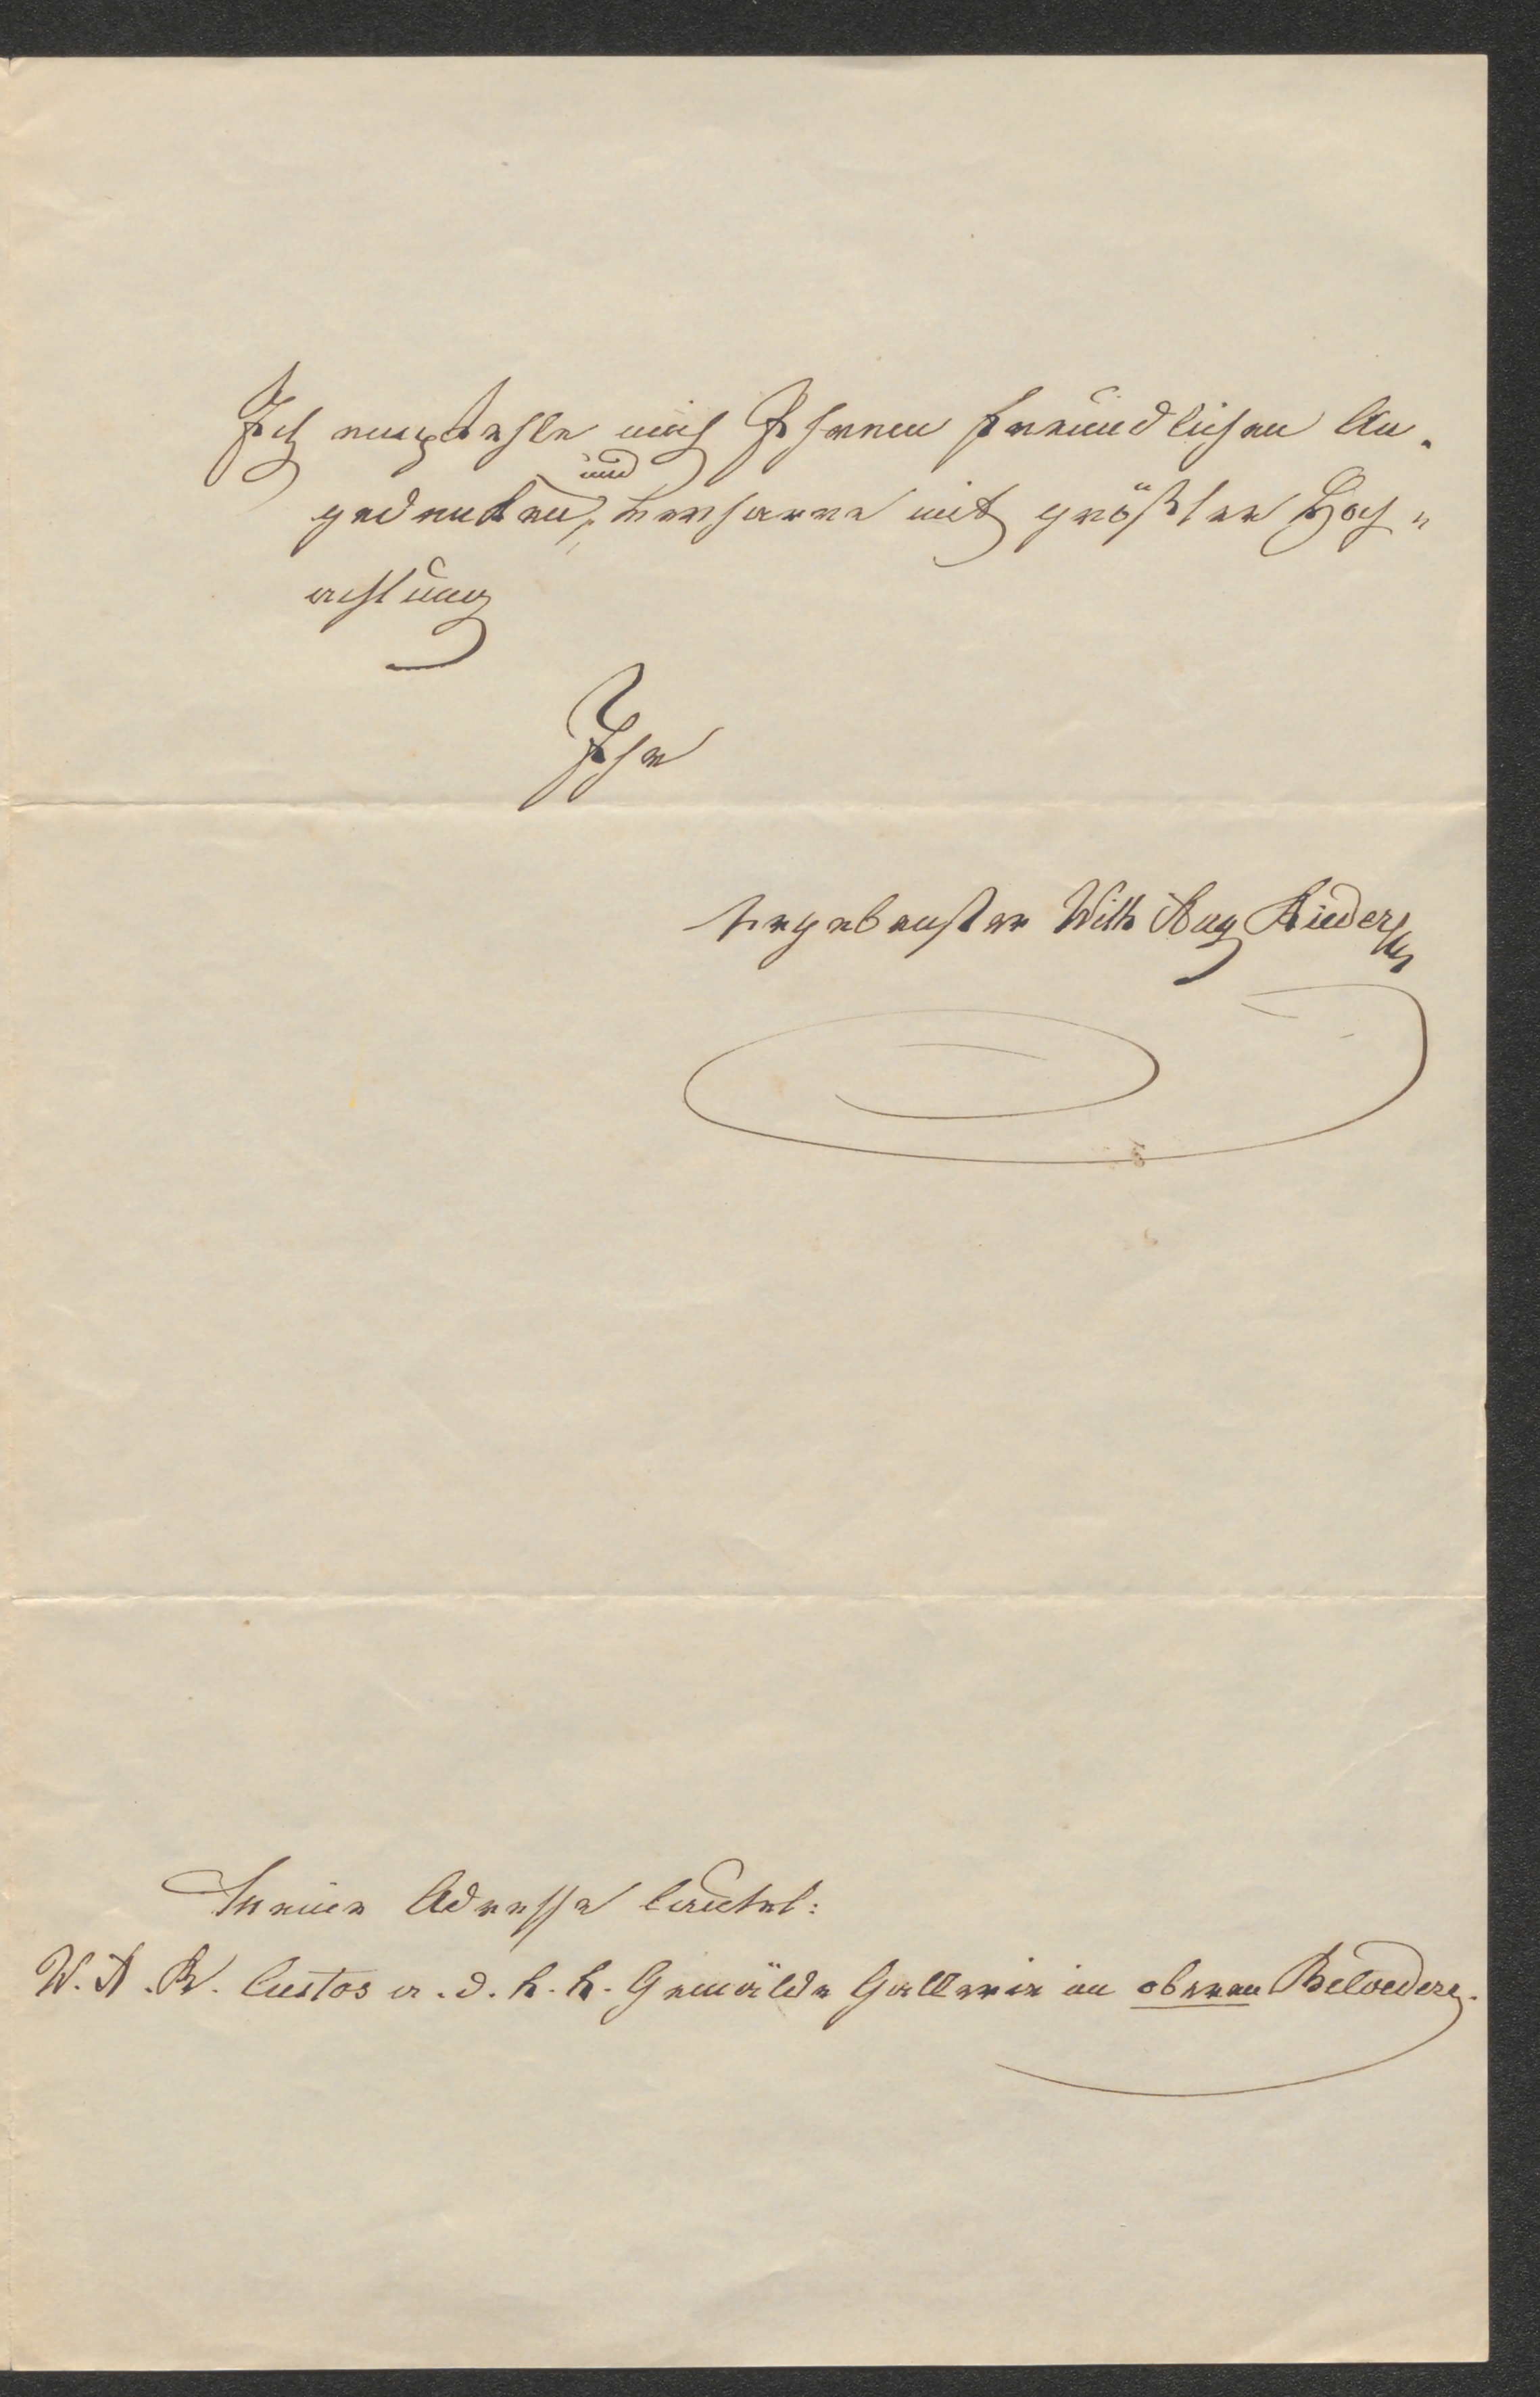 Ich empfehle mich Ihrem freundlichen An-
gedenken, und verharre mit größter Hoch-
achtung
Ihr
ergebenster Wilh Aug Rieder
Meine Adresse lautet:
W. A. R. Custos a. d. k. k. Gemälde Gallerie im oberen Belvedere.